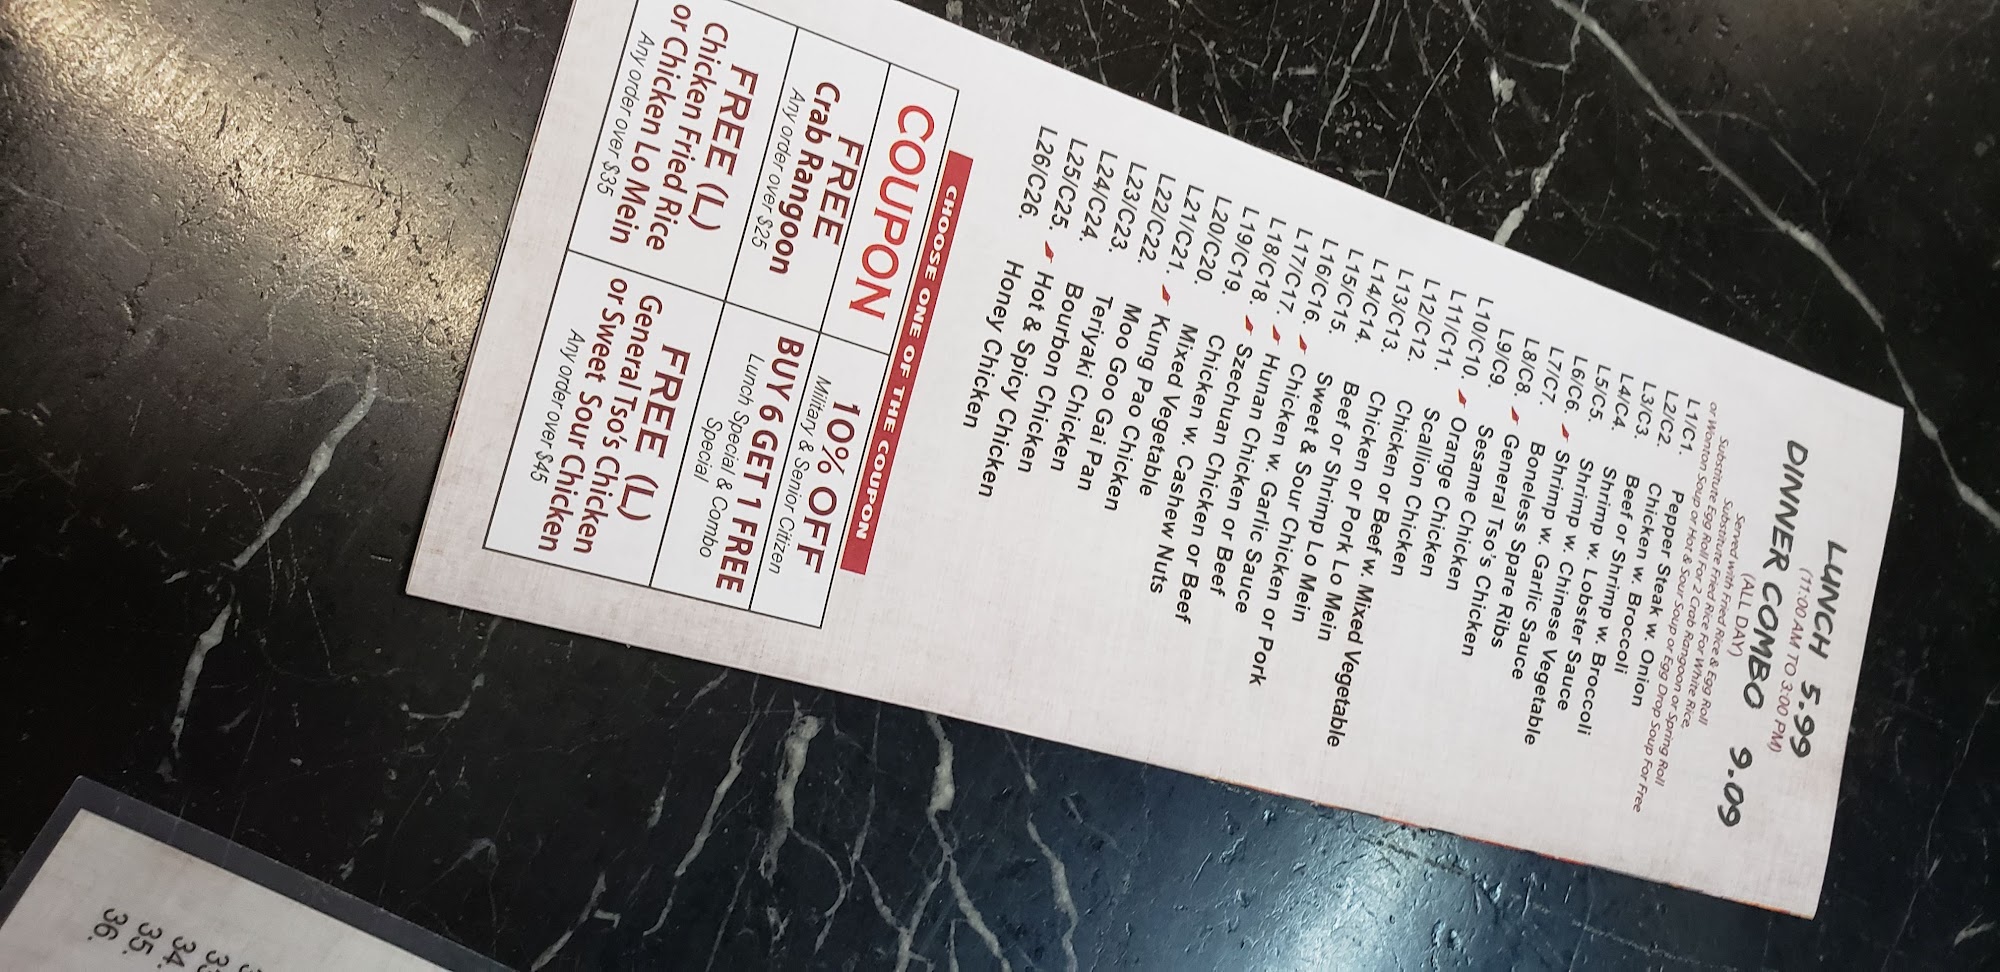 LUNCH 5.99
(11:00 AM TO 3:00 PM)
DINNER COMBO 9.09
(ALL DAY)
Served with Fried Rice & Egg Roll
Substitute Fried Rice For White Rice
Substitute Egg Roll For 2 Crab Rangoon or Spring Roll
or Wonton Soup or Hot & Sour Soup or Egg Drop Soup For Free
L1/C1. Pepper Steak w. Onion
L2/C2. Chicken w. Broccoli
L3/C3. Beef or Shrimp w. Broccoli
L4/C4. Shrimp w. Lobster Sauce
L5/C5. Shrimp w. Chinese Vegetable
L6/C6. Shrimp w. Garlic Sauce
L7/C7. Boneless Spare Ribs
L8/C8. General Tso's Chicken
L9/C9. Sesame Chicken
L10/C10. Orange Chicken
L11/C11. Scallion Chicken
L12/C12. Chicken or Beef w. Mixed Vegetable
L13/C13. Chicken or Pork Lo Mein
L14/C14. Beef or Shrimp Lo Mein
L15/C15. Sweet & Sour Chicken or Pork
L16/C16. Chicken w. Garlic Sauce
L17/C17. Hunan Chicken or Beef
L18/C18. Szechuan Chicken or Beef
L19/C19. Chicken w. Cashew Nuts
L20/C20. Mixed Vegetable
L21/C21. Kung Pao Chicken
L22/C22. Moo Goo Gai Pan
L23/C23. Teriyaki Chicken
L24/C24. Bourbon Chicken
L25/C25. Hot & Spicy Chicken
L26/C26. Honey Chicken
CHOOSE ONE OF THE COUPON
COUPON
10% OFF
Military & Senior Citizen
FREE
Crab Rangoon
Any order over $25
BUY 6 GET 1 FREE
Lunch Special & Combo
Special
FREE (L)
Chicken Fried Rice
or Chicken Lo Mein
Any order over $35
FREE (L)
General Tso's Chicken
or Sweet Sour Chicken
Any order over $45
34.
35.
36.